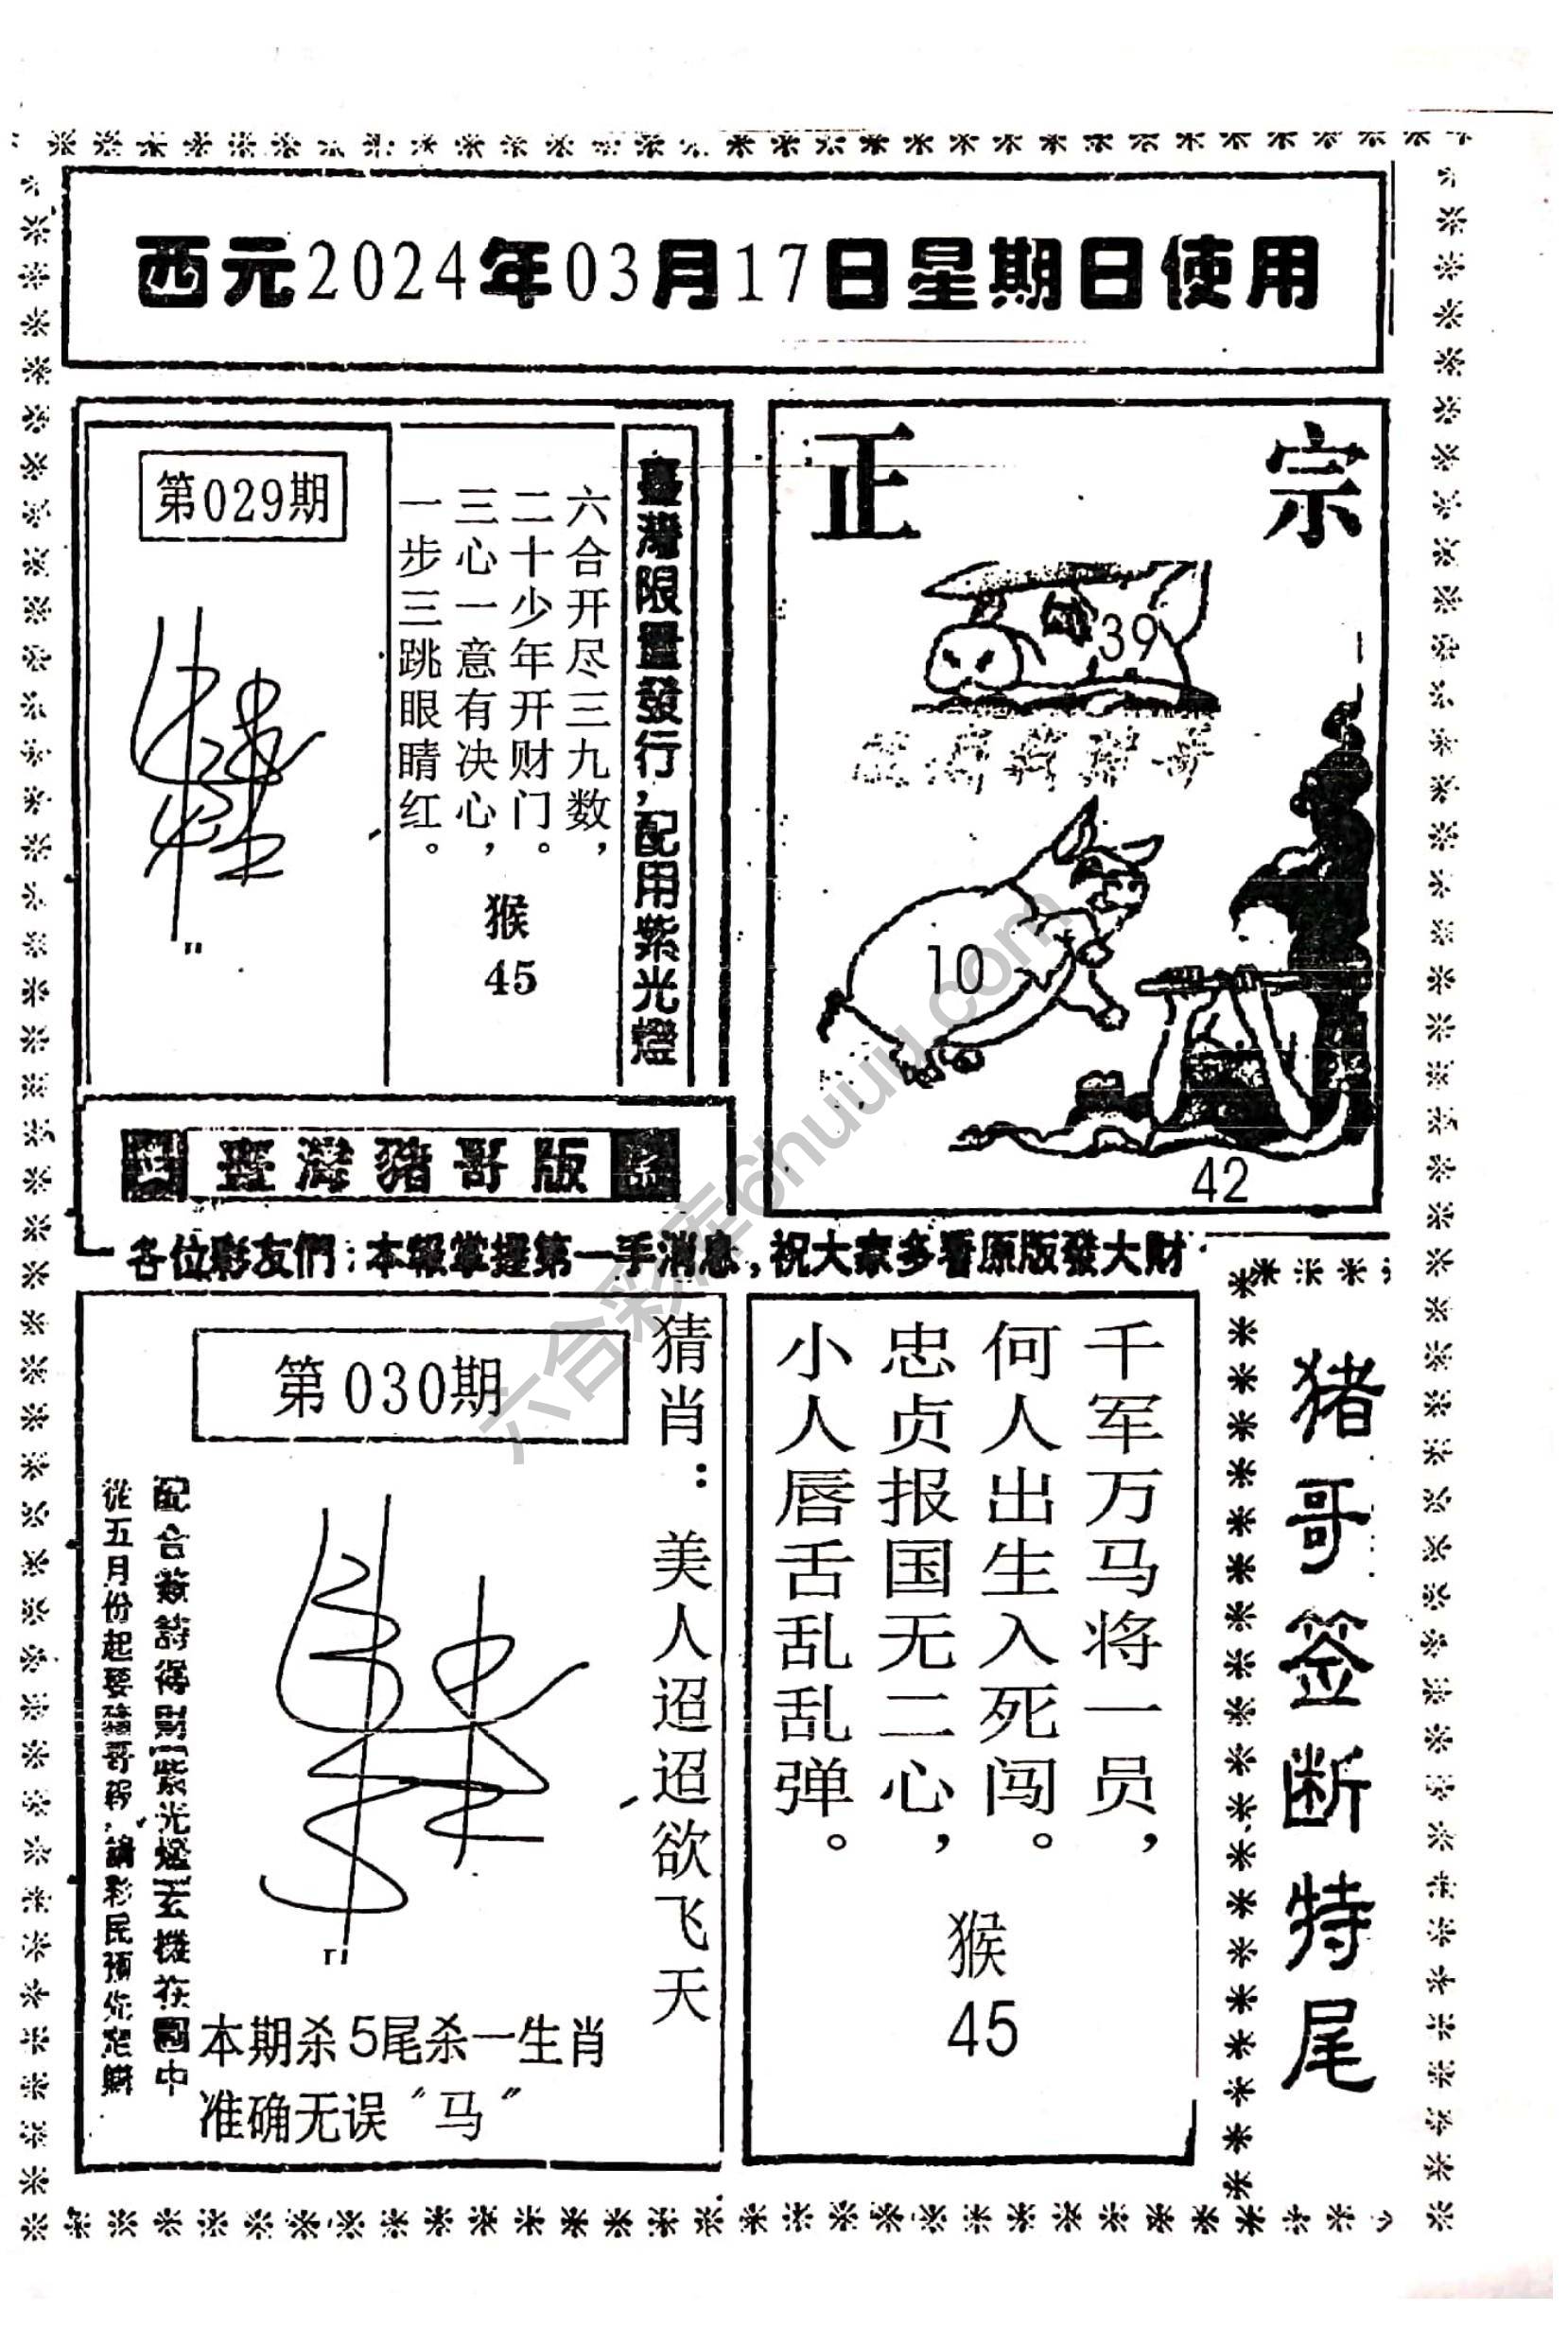 西元2024年03月17日星期日使用
第029期
臺灣限量發行，配用紫光燈
六合开尽三九数，
二十少年开财门。
三心一意有决心，
一步三跳眼睛红。
猴
45
正宗
39
10
42
臺灣豬哥版
各位彩友們：本報掌握第一手消息，祝大家多看原版發大財
第030期
猜肖：美人迢迢欲飞天
從五月份起要豬哥報，請彩民預先定購
本期杀5尾杀一生肖
准确无误〝马〞
千军万马将一员，
何人出生入死闯。
忠贞报国无二心，
小人唇舌乱乱弹。
猴
45
猪哥签断特尾
六合彩库6huuu.com